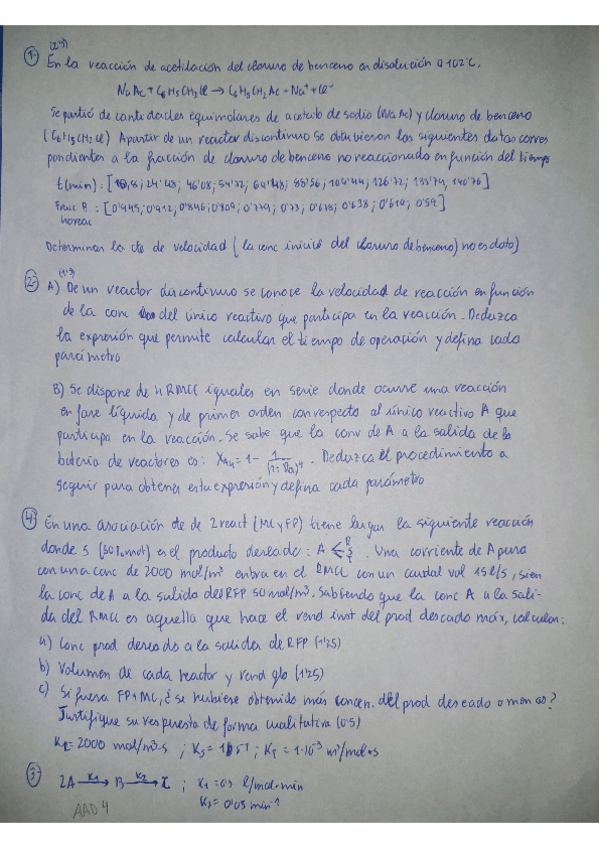 (2'5)
1- En la reacción de acetilación del cloruro de benceno en disolución a 102°C.
NaAc + C6H5CH2Cl → C6H5CH2Ac + Na+ + Cl-
Se partió de cantidades equimolares de acetato de sodio (NaAc) y cloruro de benceno
(C6H5CH2Cl) A partir de un reactor discontinuo se obtuvieron los siguientes datos corres
pondientes a la fracción de cloruro de benceno no reaccionado en función del tiempo
t(min): [10,8; 24'48; 46'08; 54'72; 69'48; 88'56; 109'44; 126'72; 133'74; 140'76]
Frac B : [0'945; 0'912; 0'846; 0'809; 0'779; 0'73; 0'678; 0'638; 0'619; 0'59]
no reac
Determinar la cte de velocidad (la conc inicial del cloruro de benceno) no es dato)
2- A) De un reactor discontinuo se conoce la velocidad de reacción en función
de la conc del único reactivo que participa en la reacción. Deduzca
la expresión que permite calcular el tiempo de operación y defina cada
parámetro
B) Se dispone de 4 RMCC iguales en serie donde ocurre una reacción
en fase líquida y de primer orden con respecto al único reactivo A que
participa en la reacción. Se sabe que la conv de A a la salida de la
batería de reactores es: XA4 = 1 - 1/(1+Da)^4 . Deduzca el procedimiento a
seguir para obtener esta expresión y defina cada parámetro
4 En una asociación de 2 react (MC y FP) tiene lugar la siguiente reacción
donde S (50% mol) es el producto deseado: A < R S T . Una corriente de A pura
con una conc de 2000 mol/m³ entra en el RMCC con un caudal vol 15 l/s, sien
la conc de A a la salida del RFP 50 mol/m³. Sabiendo que la conc A a la sali-
da del RMCC es aquella que hace el rend inst del prod deseado máx, calcular:
a) Conc prod deseado a la salida de RFP (1'25)
b) Volumen de cada reactor y rend glo (1'25)
c) Si fuera FP+MC, ¿se hubiese obtenido más concen. del prod deseado o menos?
Justifique su respuesta de forma cualitativa (0'5)
KR = 2000 mol/m³·s ; KS = s-1 ; KT = 1·10-3 m³/mol·s
3- 2A K1→ B K2→ I ; K1 = l/mol·min
K2 = 0'05 min-1
AAD 4